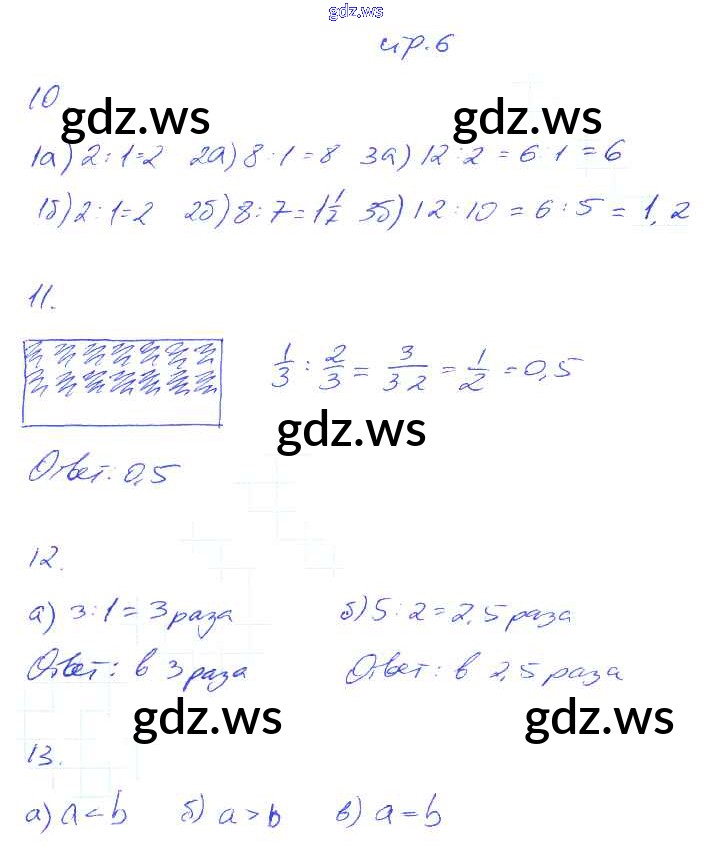 gdz.ws
стр.6
10
gdz.ws gdz.ws
1а) 2:1=2 2а) 8:1=8 3а) 12:2=6:1=6
1б) 2:1=2 2б) 8:7=1 1/7 3б) 12:10=6:5=1,2
11.
1/3 : 2/3 = 3/3 2 = 1/2 = 0,5
gdz.ws
Ответ: 0,5
12.
а) 3:1=3 раза б) 5:2=2,5 раза
Ответ: в 3 раза Ответ: в 2,5 раза
gdz.ws gdz.ws
13.
а) a<b б) a>b в) a=b